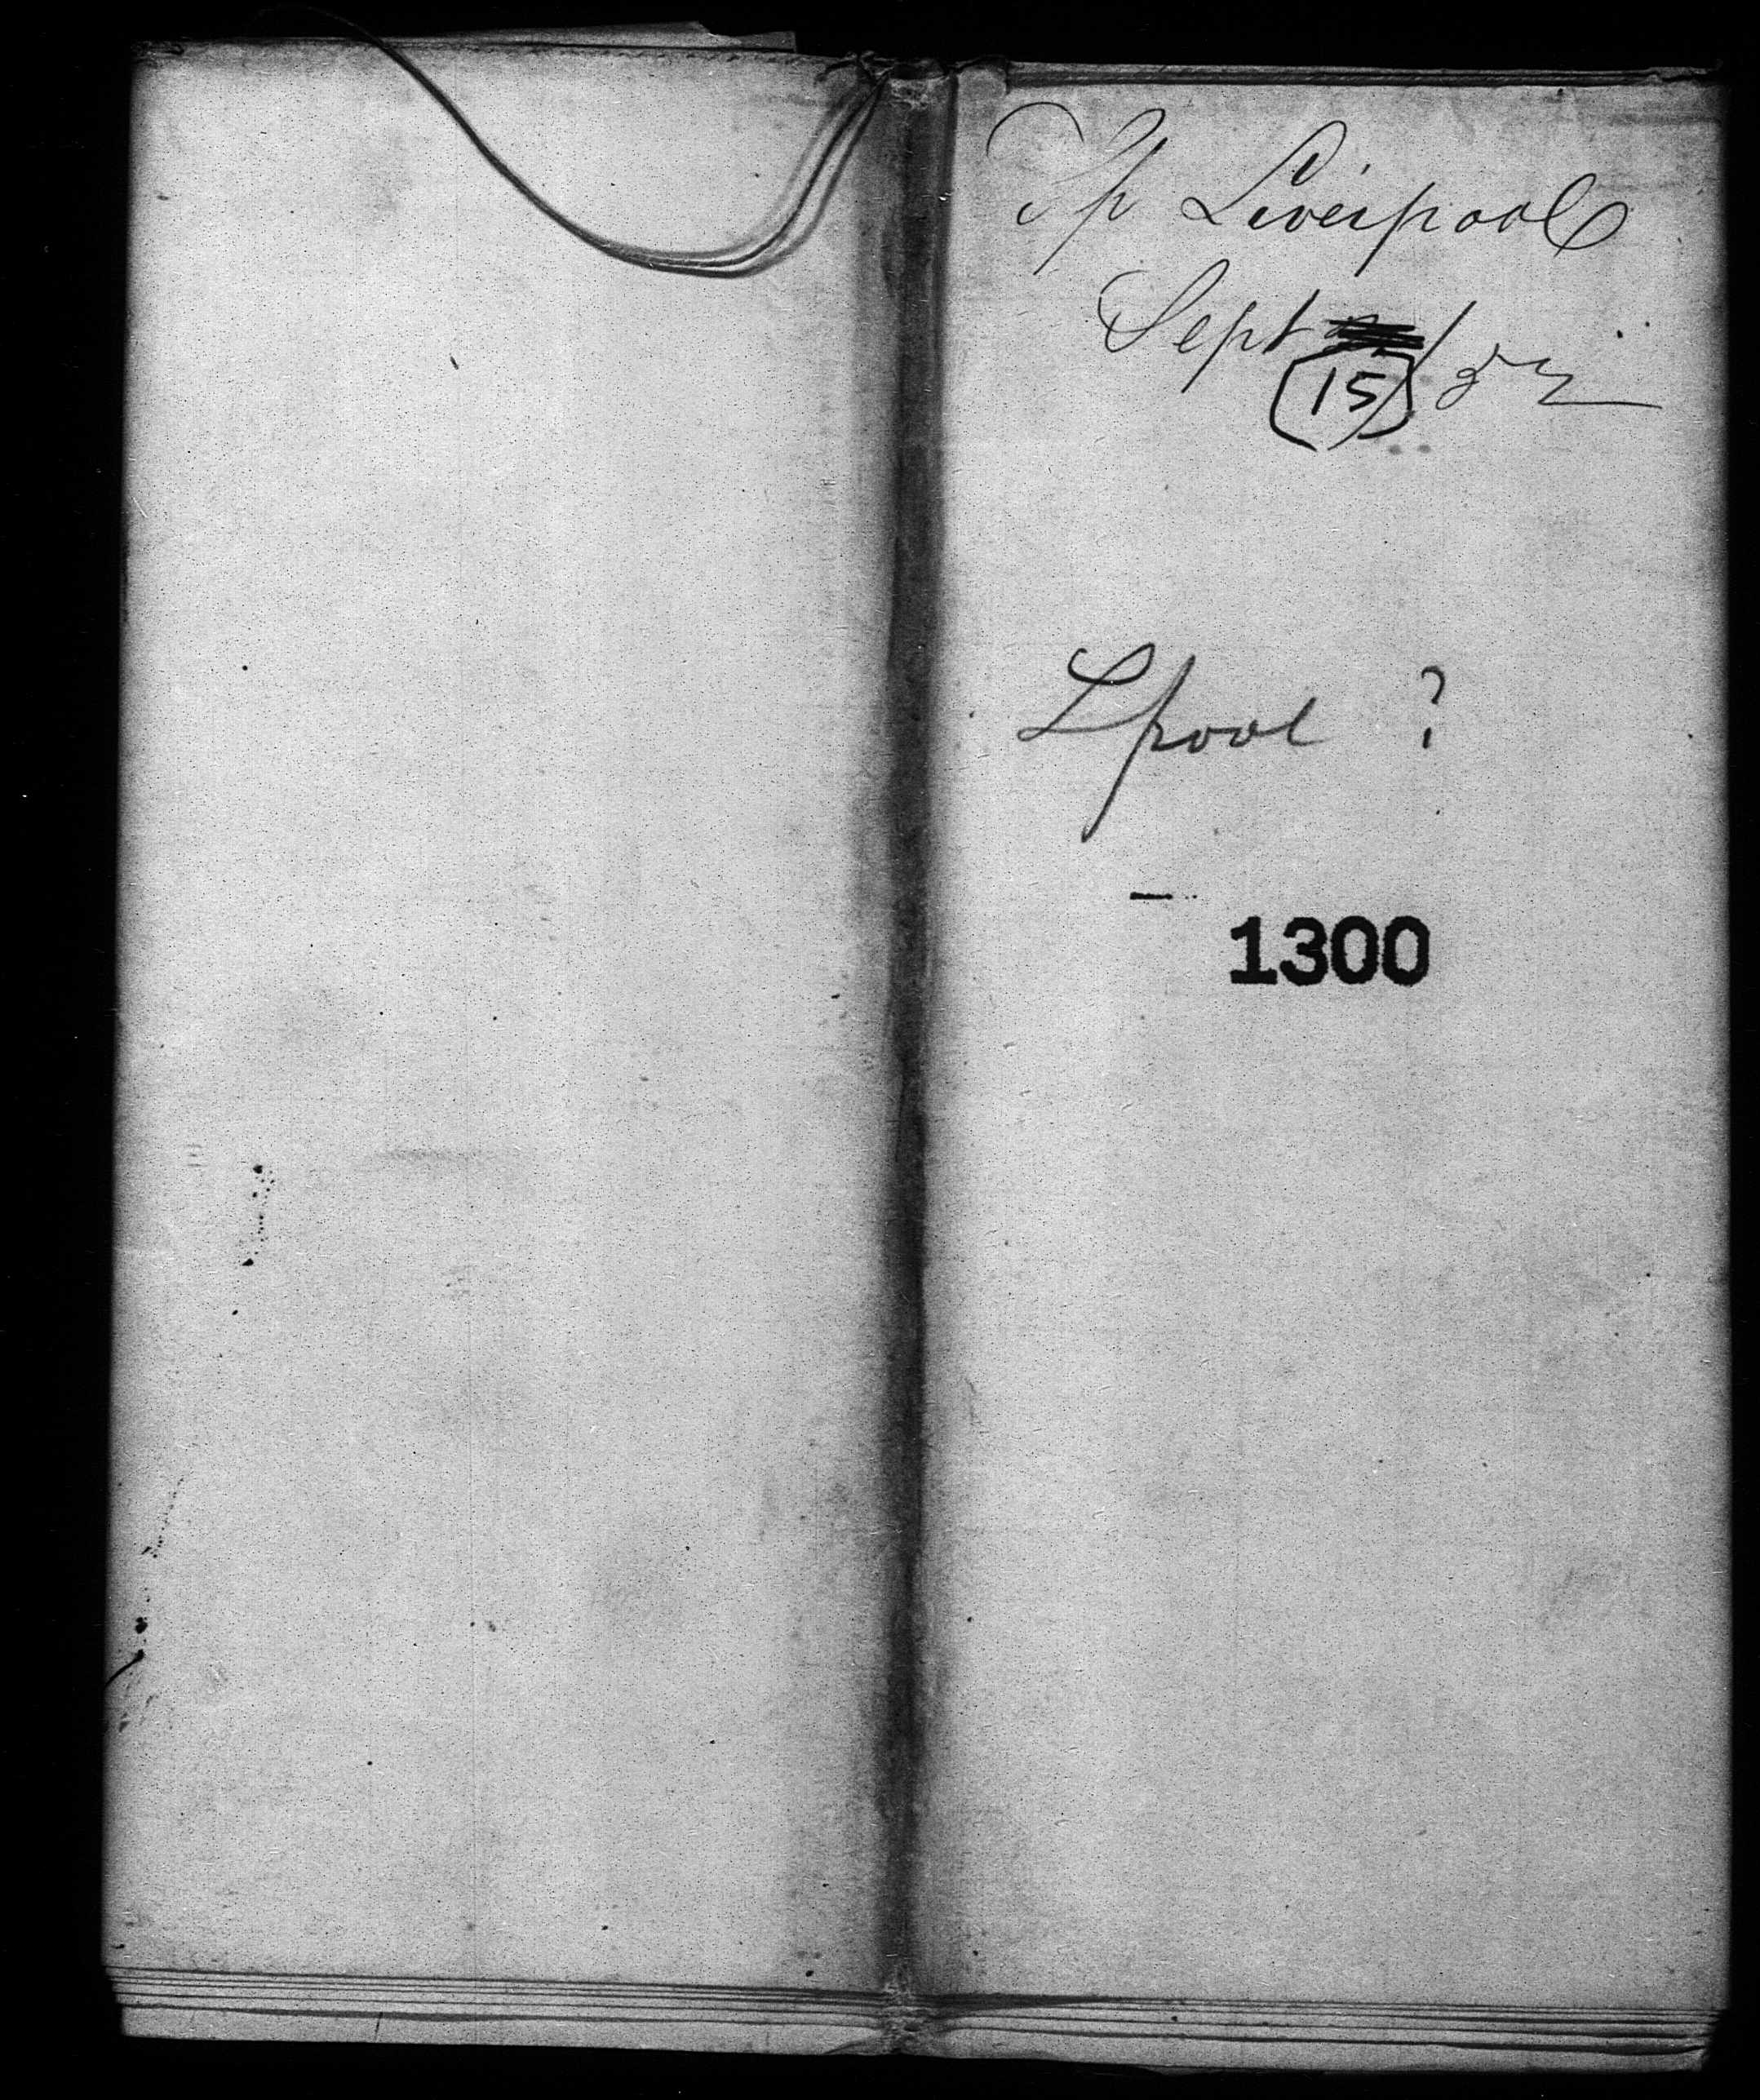 Sp Liverpool
Sept /52
15
Lpool ?
1300